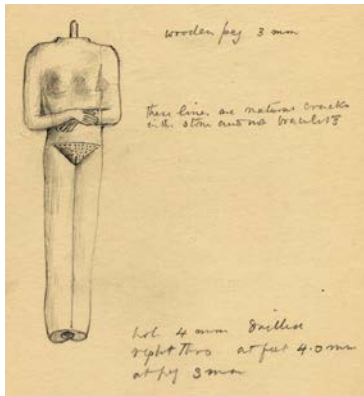 wooden peg 3 mm
these lines are natural cracks
in the stone and not bracelets
hole 4 mm drilled
right thro at feet 4.0 mm
at peg 3 mm